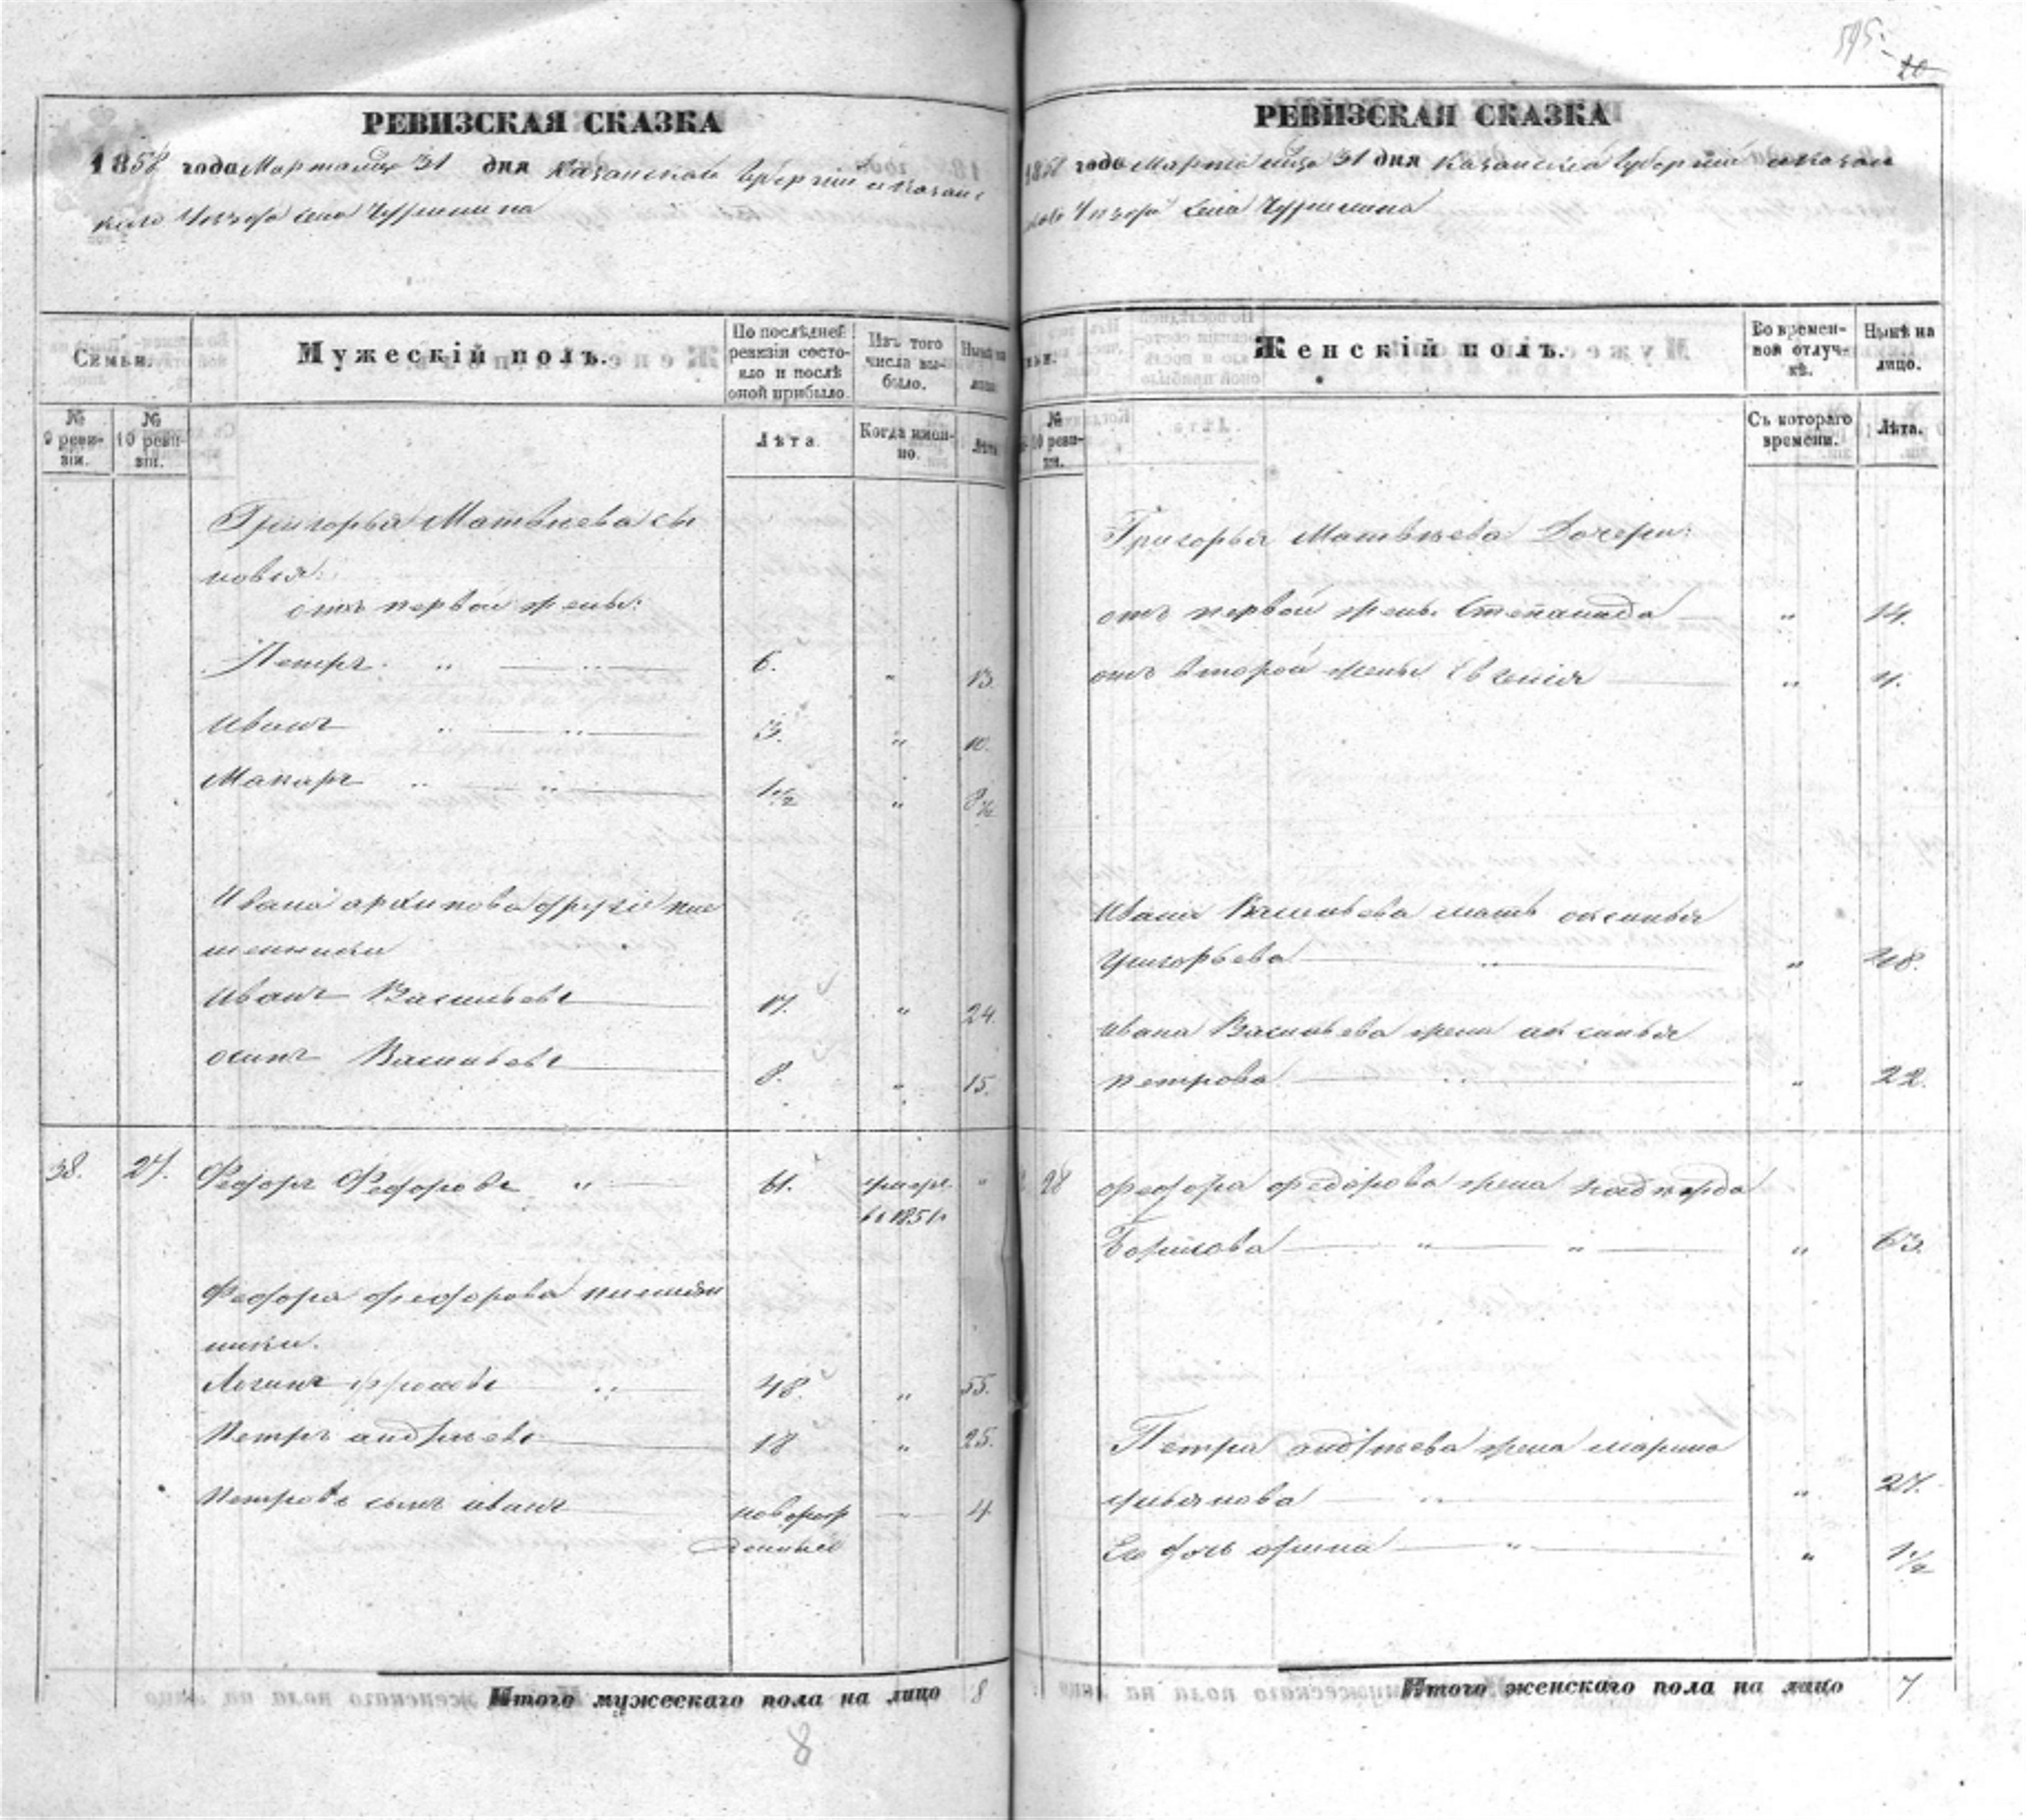 595.
20
РЕВИЗСКАЯ СКАЗКА
1858 года Марта мца 31 дня Казанской Губернии и Казанс
каго Уезда села Чурилина
Семьи.
Мужескій полъ.
По послѣдней
ревизіи состо-
яло и послѣ
оной прибыло.
Изъ того
числа вы-
было.
Нынѣ на
лицо.
№
9 реви-
зіи.
№
10 реви-
зіи.
Лѣта.
Когда имен-
но.
Лѣта
Григорья Матвѣева сы
новья:
отъ первой жены:
Петръ " " 6. " 13.
Иванъ " " 3. " 10.
Макаръ " " 1 1/2 "
Ивана Архипова другіе пле
менники
Иванъ Васильевъ 17. " 24.
Осипъ Васильевъ 8. " 15.
38. 27. Федоръ Федоровъ " 61. "
въ 1851.
Федора Федорова племян
ники.
Логинъ Фроловъ " 48. " 55.
Петръ Андреевъ 18 " 25.
Петровъ сынъ Иванъ новорож " 4.
денные
Итого мужескаго пола на лицо 8
8
РЕВИЗСКАЯ СКАЗКА
1858 года Марта мца 31 дня Казанской Губерніи и Казан
скаго Уезда Села Чурилина
Женскій полъ.
Во времен-
ной отлуч-
кѣ.
Нынѣ на
лицо.
№
10 реви-
зіи.
Съ котораго
времени.
Лѣта.
Григорья Матвѣева Дочери:
отъ первой жены Степанида " 14.
отъ второй жены Евгенія " 4.
Ивана Васильева мать Аксинья
Григорьева " " 48.
Ивана Васильева жена Аксинья
Петрова " " 22.
28 Федора Федорова жена
Борисова " " " 63.
Петра Андреева жена Марина
" " 27.
Его дочь Орина " " 1 1/2
Итого женскаго пола на лицо 7